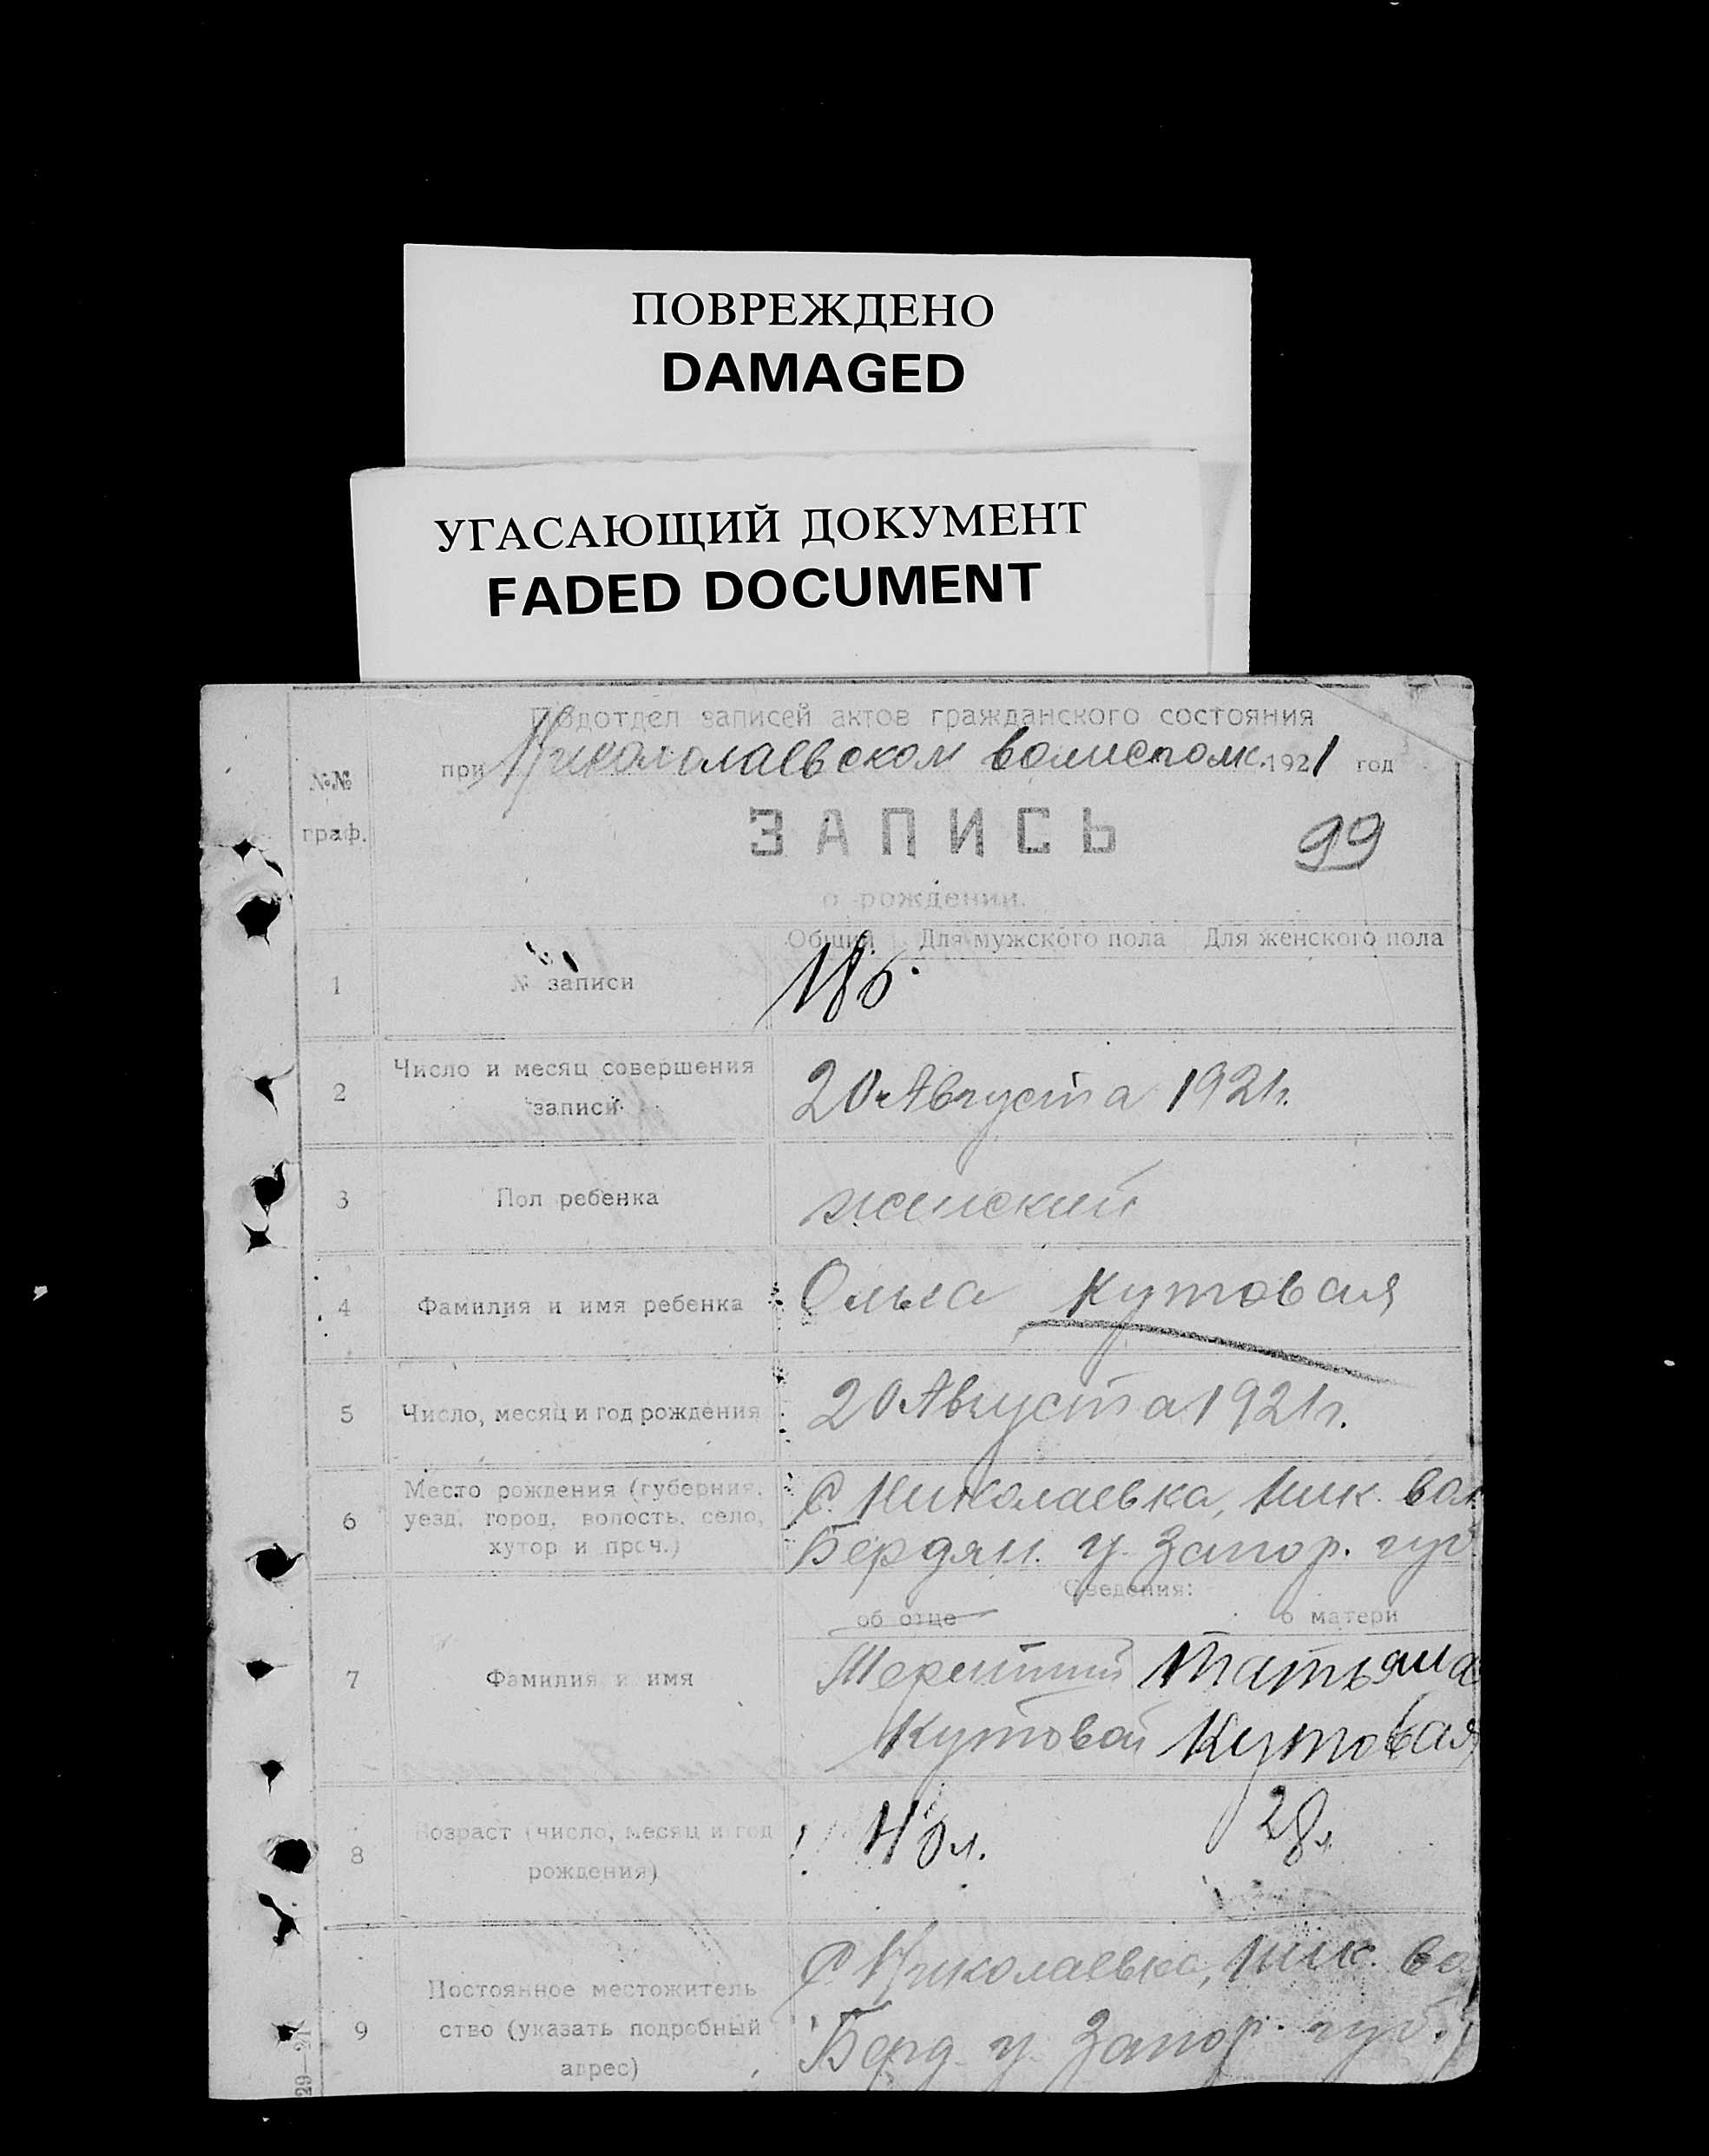 ПОВРЕЖДЕНО
DAMAGED
УГАСАЮЩИЙ ДОКУМЕНТ
FADED DOCUMENT
Подотдел записей актов гражданского состояния
при Николаевском волисполк. 1921 год
№№
граф.
ЗАПИСЬ
99
о рождении.
Общий Для мужского пола Для женского пола
1 № записи
2 Число и месяц совершения 20 Августа 1921 г.
записи
3 Пол ребенка женский
4 Фамилия и имя ребенка Ольга Кутовая
5 Число, месяц и год рождения 20 Августа 1921 г.
6 Место рождения (губерния, С. Николаевка, Ник. вол
уезд, город, волость, село, Бердян. у. Запор. губ
хутор и проч.)
Сведения:
об отце о матери
7 Фамилия и имя Терентий Татьяна
Кутовой Кутовая
8 Возраст (число, месяц и год 28 л.
рождения)
9 Постоянное местожитель С. Николаевка, Ник. во
ство (указать подробный Берд. у. Запор. губ.
адрес)